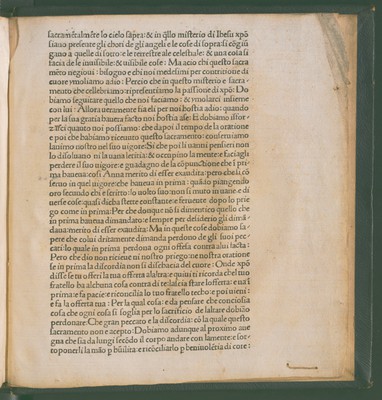 sacramẽtalmẽte lo cielo sapra: & in q̃llo misterio di Ihesu xp̃o
siano presente gli chori de gli angeli e le cose di sopra si cõgiũ
gano a quelle di sotto: e le terrestre ale celestiale: & una cosa si
facia de le inuisibile: & uisibile cose: Ma acio chi questo sacra
mẽto negioui: bisogno e chi noi medesimi per contritione di
cuore ymoliamo adio: Percio che in questo misterio e sacra
mento che cellebriamo: ripresentiamo la passione di xp̃o: Do
biamo seguitare quello che noi faciamo: & ymolarci insieme
con lui: Allora ueramente sia eli per noi hostia adio: quando
per la sua gratia hauera facto noi hostia ase: E dobiamo isfor
zarci quanto noi possiamo: che dapoi il tempo de la oratione
e poi che habiamo riceuuto questo sacramento: conseruiamo
lanimo nostro nel suo uigore: Si che poi li uanti pensieri non
lo disoluano ni la uana letitia: & occupino la mente: e faciagli
perdere il suo uigore: e guadagno de la cõpunctione che i pri
ma haueua: cosi Anna merito di esser exaudita: pero che si cõ
seruo in quel uigore: che haueua in prima: quãdo piangendo
oro secundo chi e scritto: lo uolto suo: non si muto in uane e di
uerse cose: quasi dicha stette constante: e feruente dopo lo prie
go come in prima: Per che donque nõ si dimentico quello che
in prima haueua dimandato: e sempre per desiderio gli dimã
daua: merito di esser exaudita: Ma in queste cose dobiamo sa
pere che colui dritamente dimanda perdono de gli suoi pec
cati: lo quale in prima perdona ogni offesa contra alui facta:
Pero che dio non riceue ni nostro priego: ne nostra oratione
se in prima la discordia non si discharica del cuore: Onde xp̃o
disse se tu offeri la tua offerta alaltra: e quiui ti ricorda chel tuo
fratello ha alchuna cosa contra di te: lascia stare lofferta: e ua i
prima: e fa pacie: e riconcilia lo tuo fratello techo: e poi uieni:
e fa la offerta tua: Per la qual cosa: e da pensare che conciosia
cosa che ogni cosa si soglia per lo sacrificio de laltare dobiõo
perdonare: Che gran peccato e la discordia: cõ la quale questo
sacramento non e acepto: Dobiamo adunque al proximo an
gne che sia da lungi secõdo il corpo andare con lamente: e sot
toponerli: la mão p̱ hũilita: e ricõciliarlo p̱ beniuolẽtia di core: